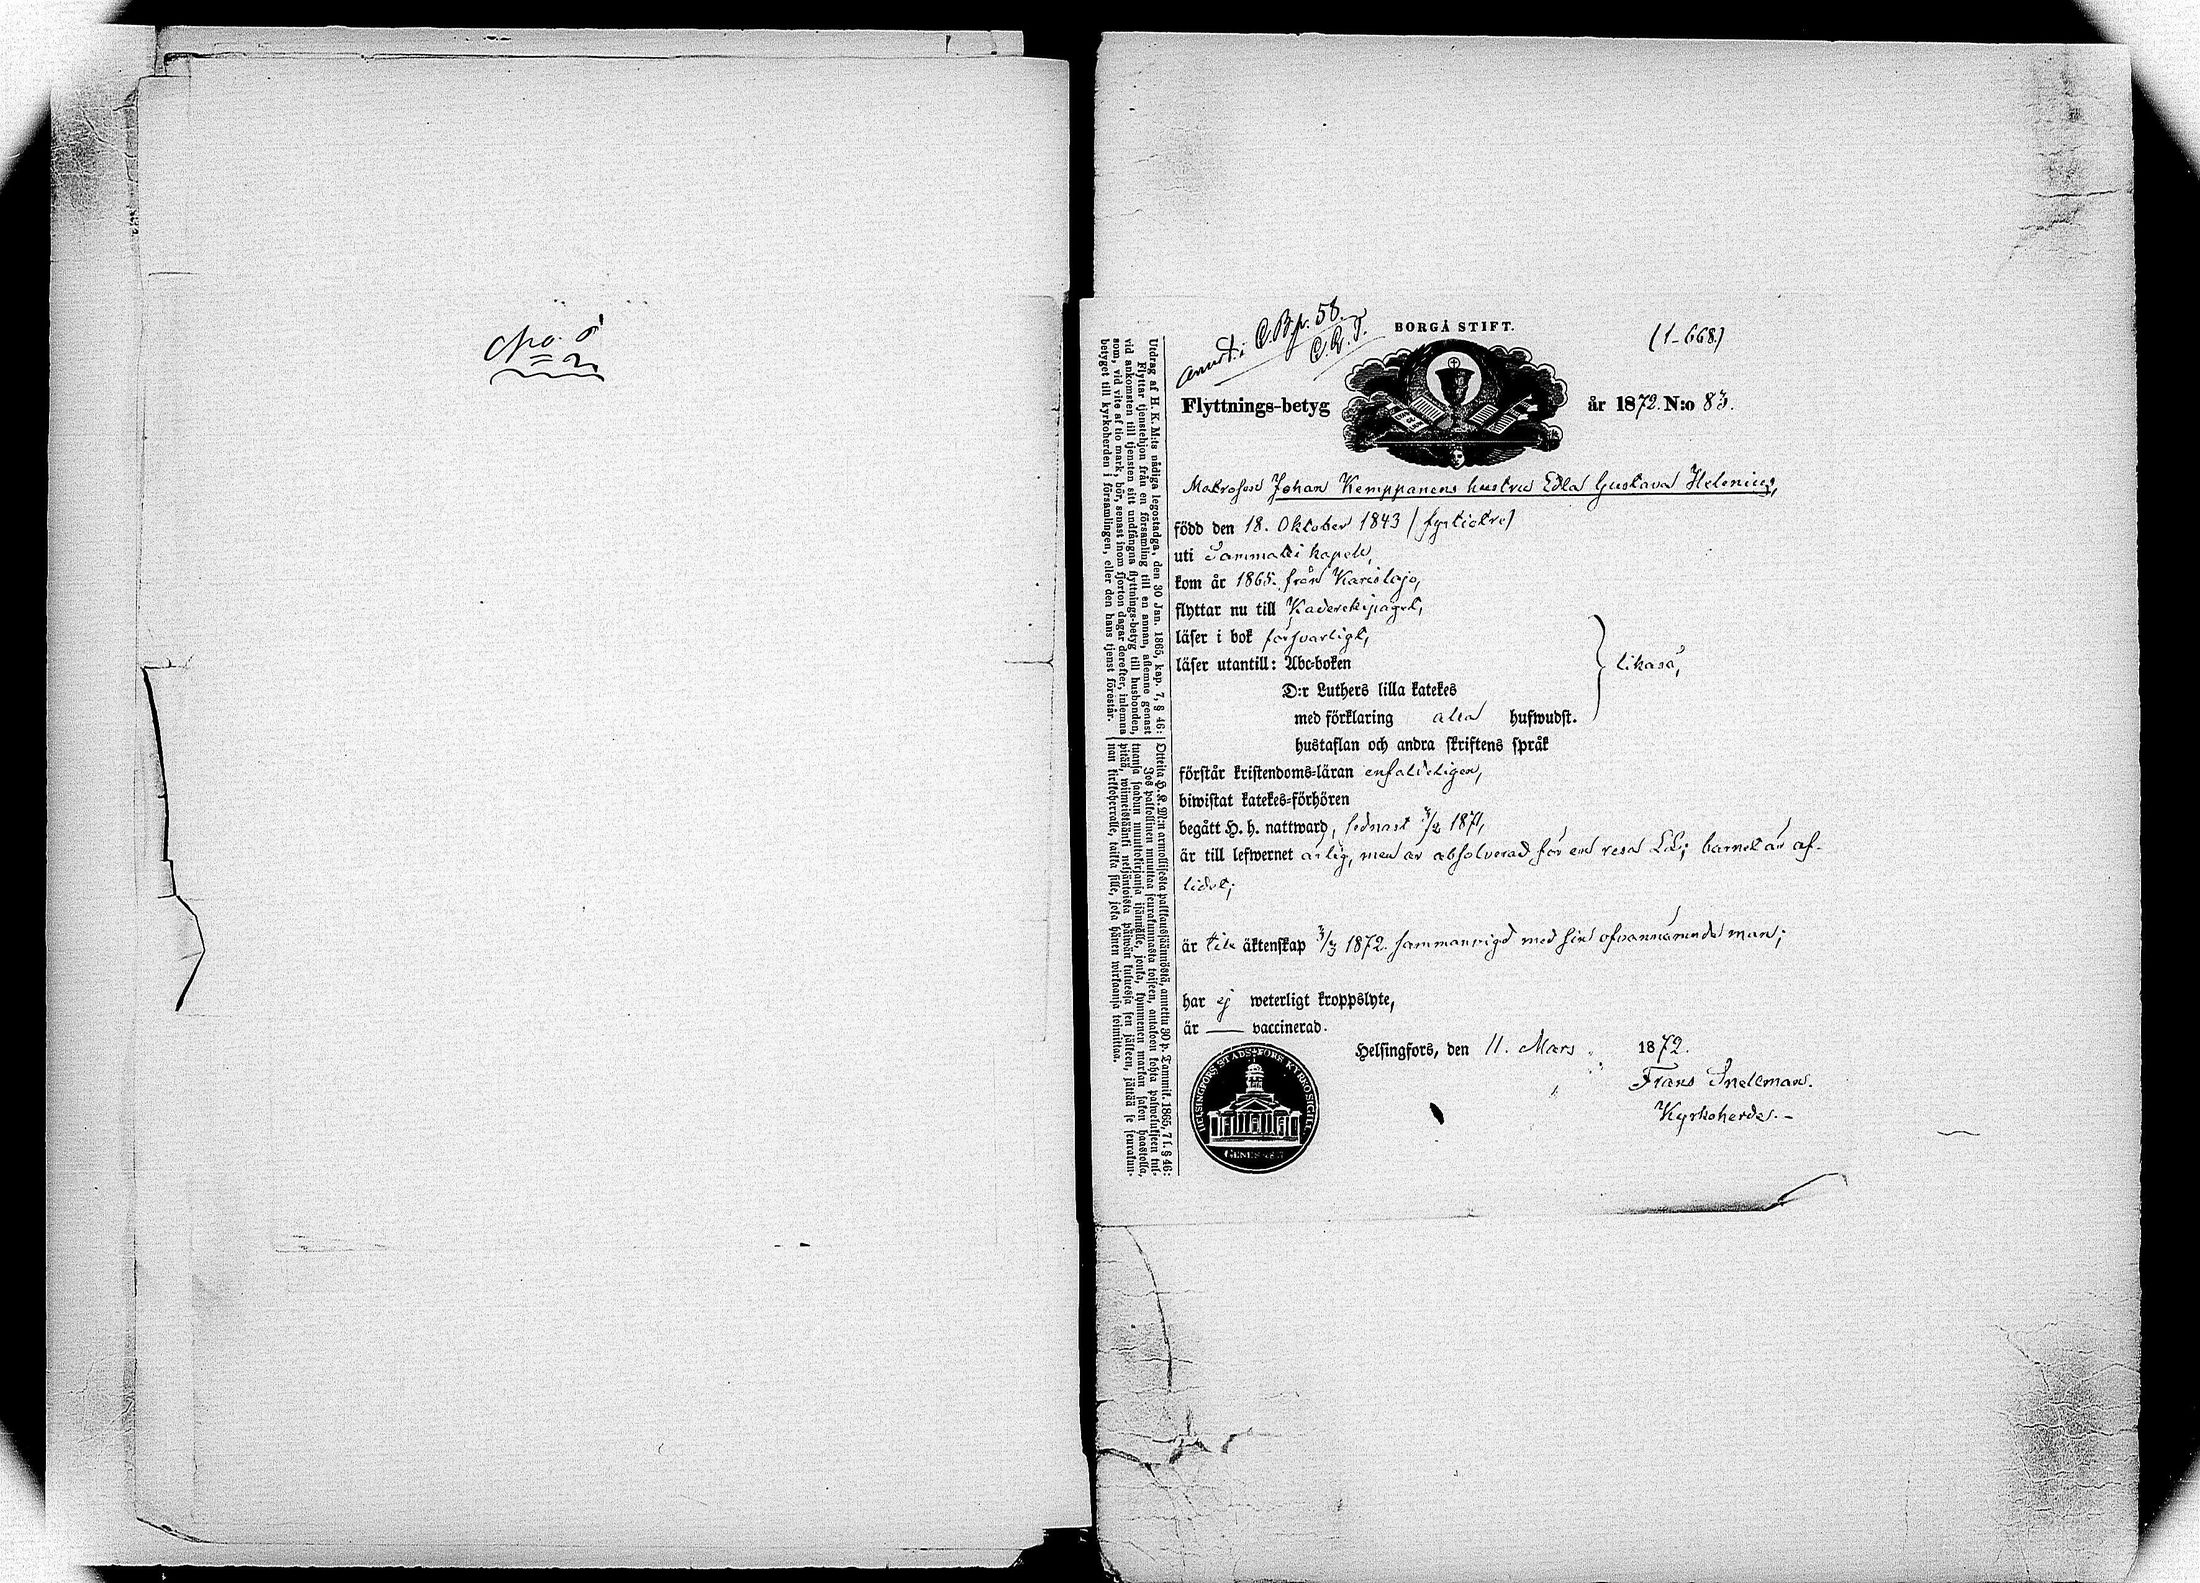 No. 8
= 2.
anmält i C.B. p. 58.
BORGÅ STIFT.
(1-668)
Flyttnings-betyg
år 1872. N:o 83.
Matrosen Johan Kemppanens hustru Edla Gustava Helenius,
född den 18. Oktober 1843 (fyrtiotre)
uti Sammatti kapell,
kom år 1865. från Karislojo,
flyttar nu till
läser i bok försvarligt,
läser utantill: Abc-boken
likaså,
D:r Luthers lilla katekes
med förklaring alla hufwudst.
hustaflan och andra skriftens språk
förstår kristendoms-läran enfaldeligen,
biwistat katekes-förhören
begått H. h. nattward, sednast 3/12 1871,
är till lefwernet ärlig, men är absolverad för en resa LS; barnet är af-
lidet;
är till äktenskap 3/3 1872. sammanvigd med sin ofvannämnde man;
har ej weterligt kroppslyte,
är — vaccinerad.
Helsingfors, den 11. Mars 1872.
Frans Snellman.
Kyrkoherde.-
HELSINGFORS STADS-FÖRS KYRKOSIGILL
Utdrag af H. K. M:ts nådiga legostadga, den 30 Jan. 1865, kap. 7, § 46:
Flyttar tjenstehjon från en församling till en annan, aflemne genast
vid ankomsten till tjensten sitt undfångna flyttnings-betyg till husbonden,
som, vid vite af tio mark, bör, senast inom fjorton dagar derefter, inlemna
betyget till kyrkoherden i församlingen, eller den hans tjenst förestår.
Otteita H. K. M:n armollisesta palkkaussäännöstä, annettu 30 p. Tammik. 1865, 7 l. § 46:
Jos palkollinen muuttaa seurakunnasta toiseen, antakoon kohta palwelukseen tul-
tuansa saadun muuttokirjansa isännälle, jonka, kymmenen markan sakon haastolla,
pitää, wiimeistäänki neljäntoista päiwän kuluessa sen jälkeen, jättää se seurakun-
nan kirkkoherralle, taikka sille, joka hänen wirkaansa toimittaa.